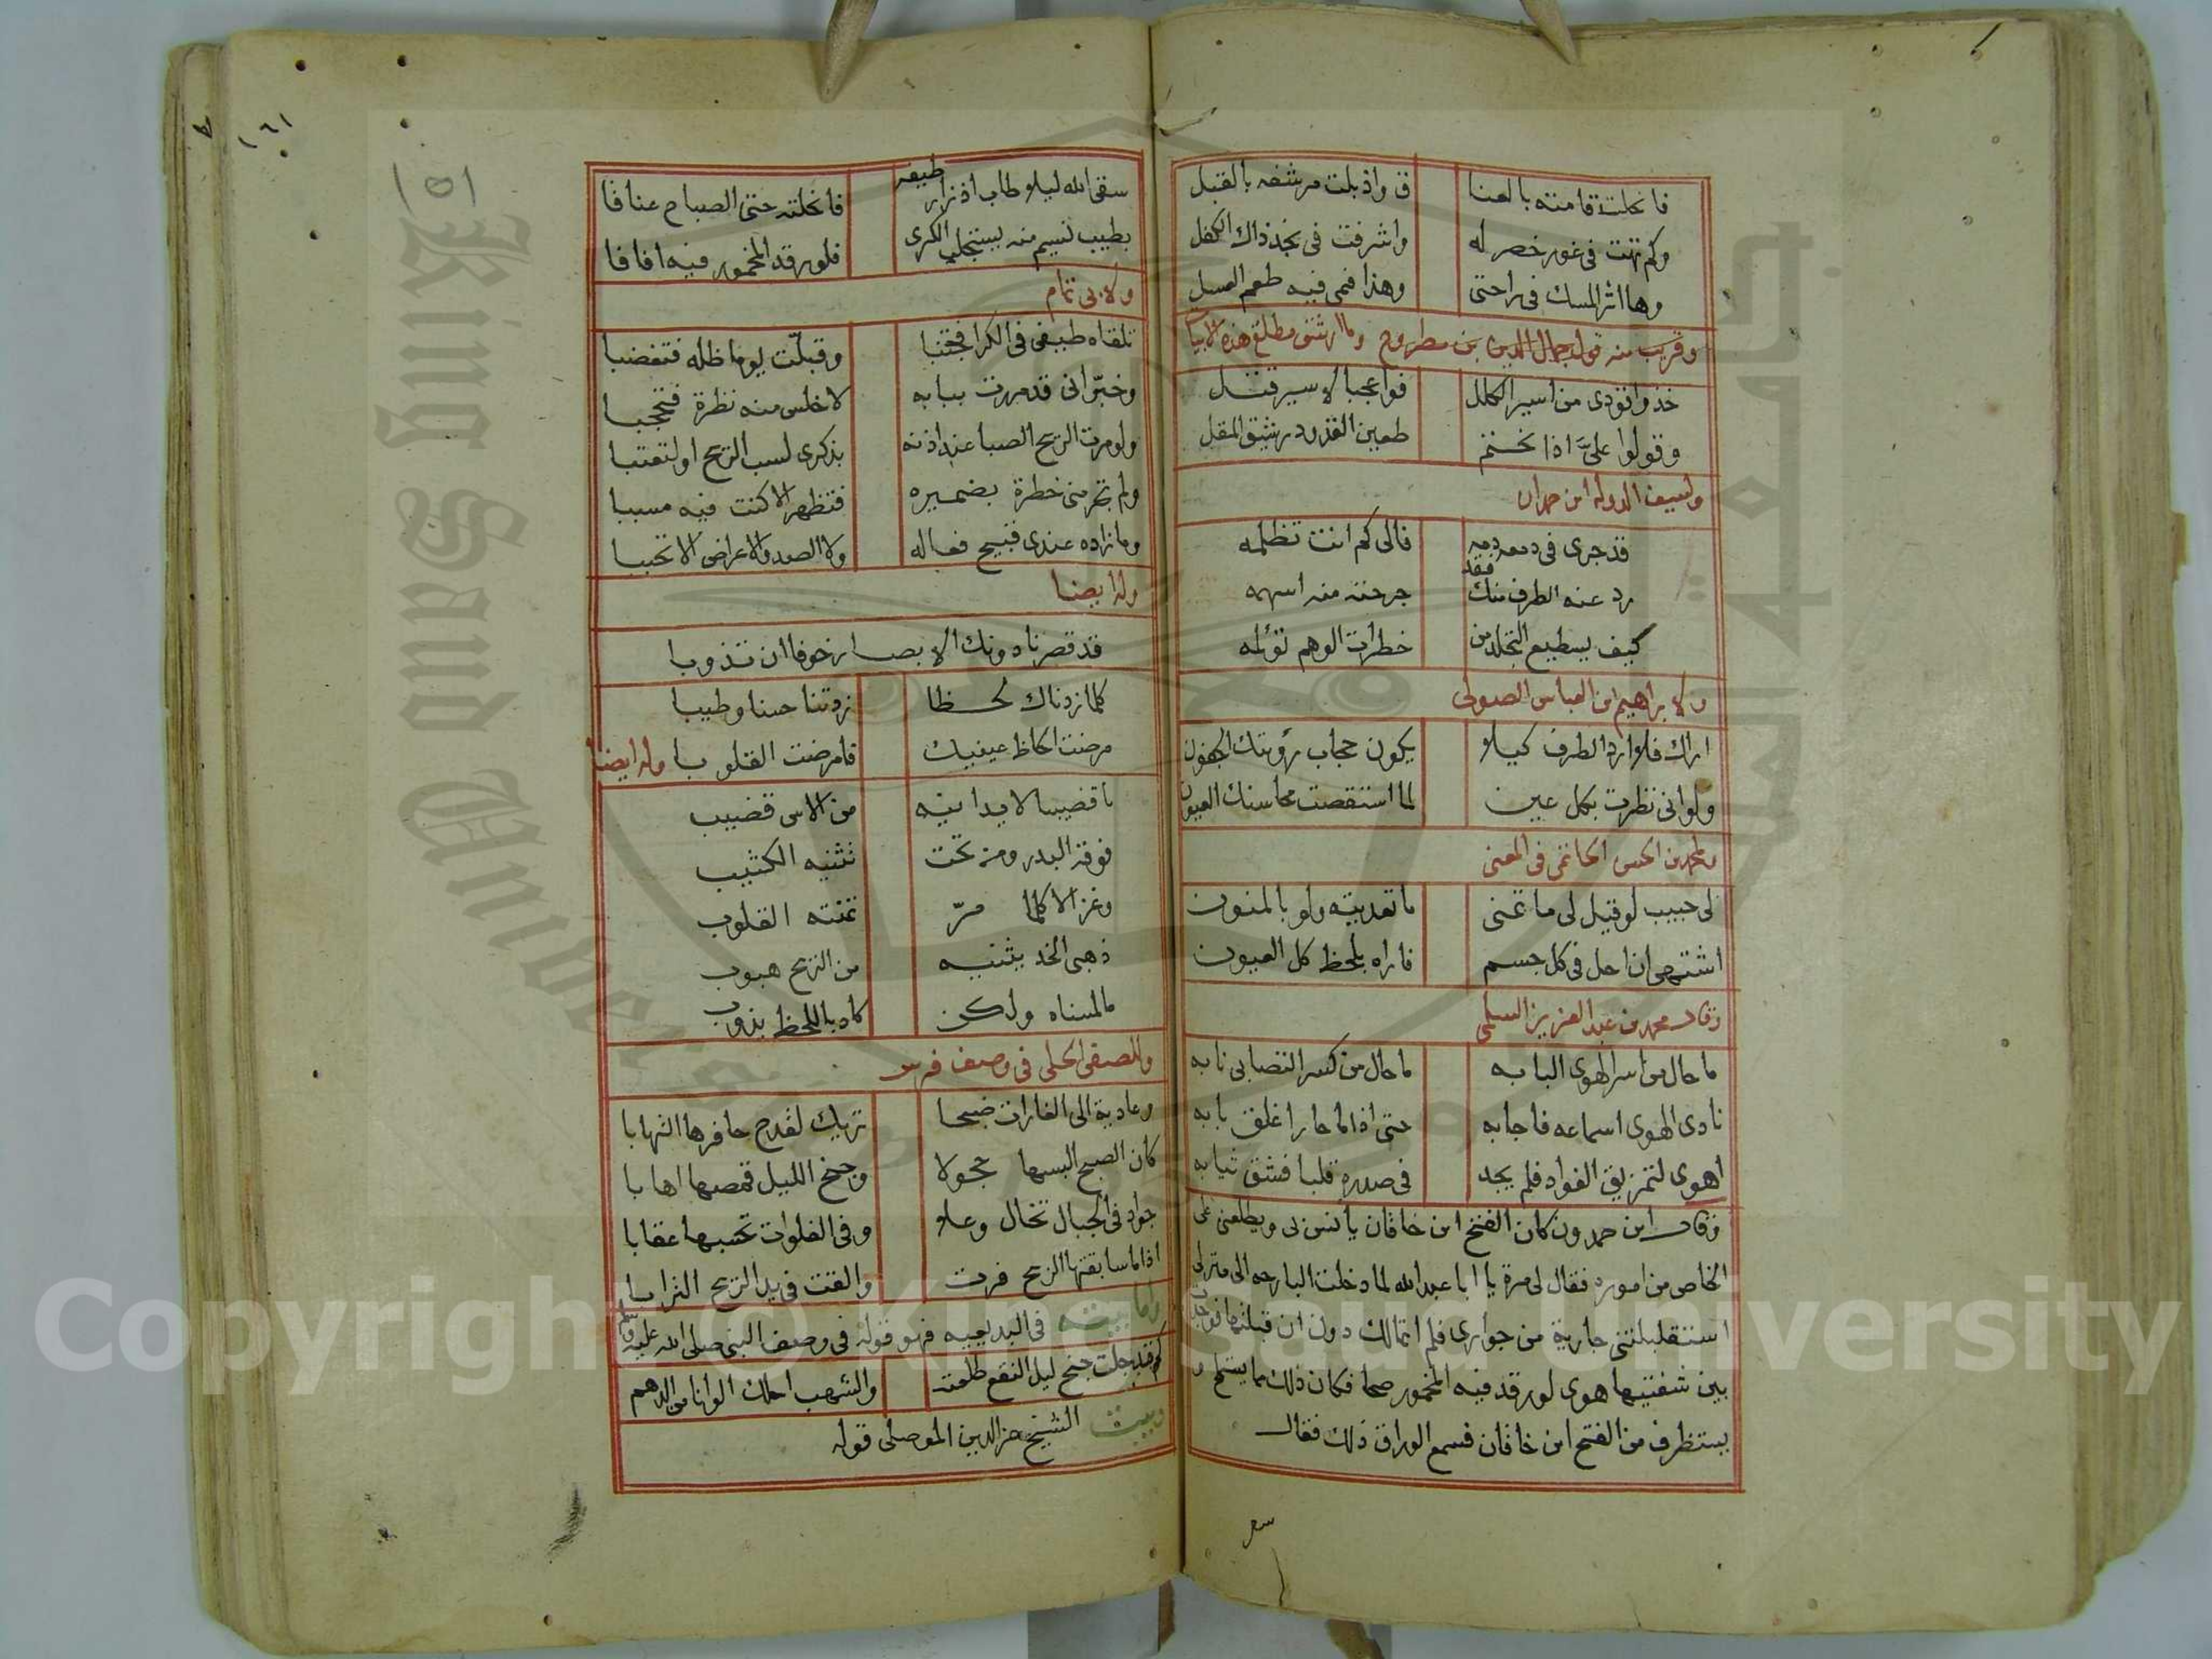 فانحلت قامته بالعنا ق واذبلت مرشفه بالقبل
وكم تهت في غور خصر له واشرفت في نجد ذاك الكفل
وها اثر المسك في راحتى وهذا فمى فيه طعم العسل
وقريب منه قول جمال الدين بن مطروح وما ارشق مطلع هذه الابيات
خذوا قودى من اسير الكلل فواعجبا لاسير قتل
وقولوا على اذا نحتم طعين القدود رشيق المقل
ولسيف الدوله ابن حمدان
قد جرى في دمعه دمه فالى كم انت تظلمه
رد عنه الطرف منك فقد جرحته منه اسهمه
كيف يسطيع التجلد من خطرات الوهم تؤلمه
ولابراهيم ابن العباس الصولى
اراك فلا ارد الطرف كيلا يكون حجاب رؤيتك الجفون
ولو انى نظرت بكل عين لما استقصت محاسنك العيون
ولمحمد بن الحسن الحاتمى في المعنى
لى حبيب لو قيل لى ما تمنى ما تعديته ولو بالمنون
اشتهى ان احل في كل جسم فاراه بلحظ كل العيون
وقال محمد بن عبد العزيز السلمى
ما حال من اسر الهوى البابه ما حال من كسر التصابى نابه
نادى الهوى اسماعه فاجابه حتى اذا ما حار اغلق بابه
اهوى لتمزيق الفواد فلم يجد في صدره قلبا فشق ثيابه
وقال ابن حمدون كان الفتح ابن خاقان يانس بى ويطلعنى على
الخاص من اموره فقال لى مرة يا ابا عبد الله لما دخلت البارحه الى منزلى
استقبلتنى جارية من جوارى فلم اتمالك دون ان قبلتها فوجدت
بين شفتيها هوى لو رقد فيه المخمور صحا فكان ذلك مما يستملح و
يستظرف من الفتح ابن خاقان فسمع الوراق ذلك فقال
سقى
١٦١
١٥١
سقى الله ليلا طاب اذ زار طيفه فانحلته حتى الصباح عناقا
بطيب نسيم منه يستجلب الكرى فلو رقد المخمور فيه افاقا
ولابى تمام
تلقاه طيفى في الكرا فتجنبا وقبلت يوما ظله فتغضبا
وخبر انى قد مررت ببابه لاخلس منه نظرة فتحجبا
ولو مرت الريح الصبا عند اذنه بذكرى لسب الريح او لتعتبا
ولم تجر منى خطرة بضميره فتظهر الا كنت فيه مسببا
وما زاده عندى قبيح فعاله ولا الصد والاعراض الا تحببا
وله ايضا
قد قصرنا دونك الابصار خوفا ان تذوبا
كلما زدناك لحظا زدتنا حسنا وطيبا
مرضت الحاظ عينيك فامرضت القلوبا وله ايضا
يا قضيبا لا يدانيه من الاس قضيب
فوقه البدر ومن تحت تثنيه الكثيب
وغزالا كلما مرّ تمنته القلوب
ذهبى الخد يثنيه من الريح هبوب
ما لمسناه ولكن كاد باللحظ يذوب
وللصفى الحلى في وصف فرس
وعادية الى الغارات ضبحا تريك لقدح حافرها التهابا
كان الصبح البسها حجولا وجنح الليل قمصها اهابا
جواد في الجبال تخال وعلا وفى الفلوات تحسبها عقابا
اذا ما سابقتها الريح فرت والقت في يد الريح الترابا
واما بيته في البديعيه فهو قوله في وصف النبى صلى الله عليه وسلم
كم قد جلت جنح ليل النقع طلعته والشهب احلك الوانا من الدهم
وبيت الشيخ عز الدين الموصلى قوله
Copyright © King Saud University
King Saud University